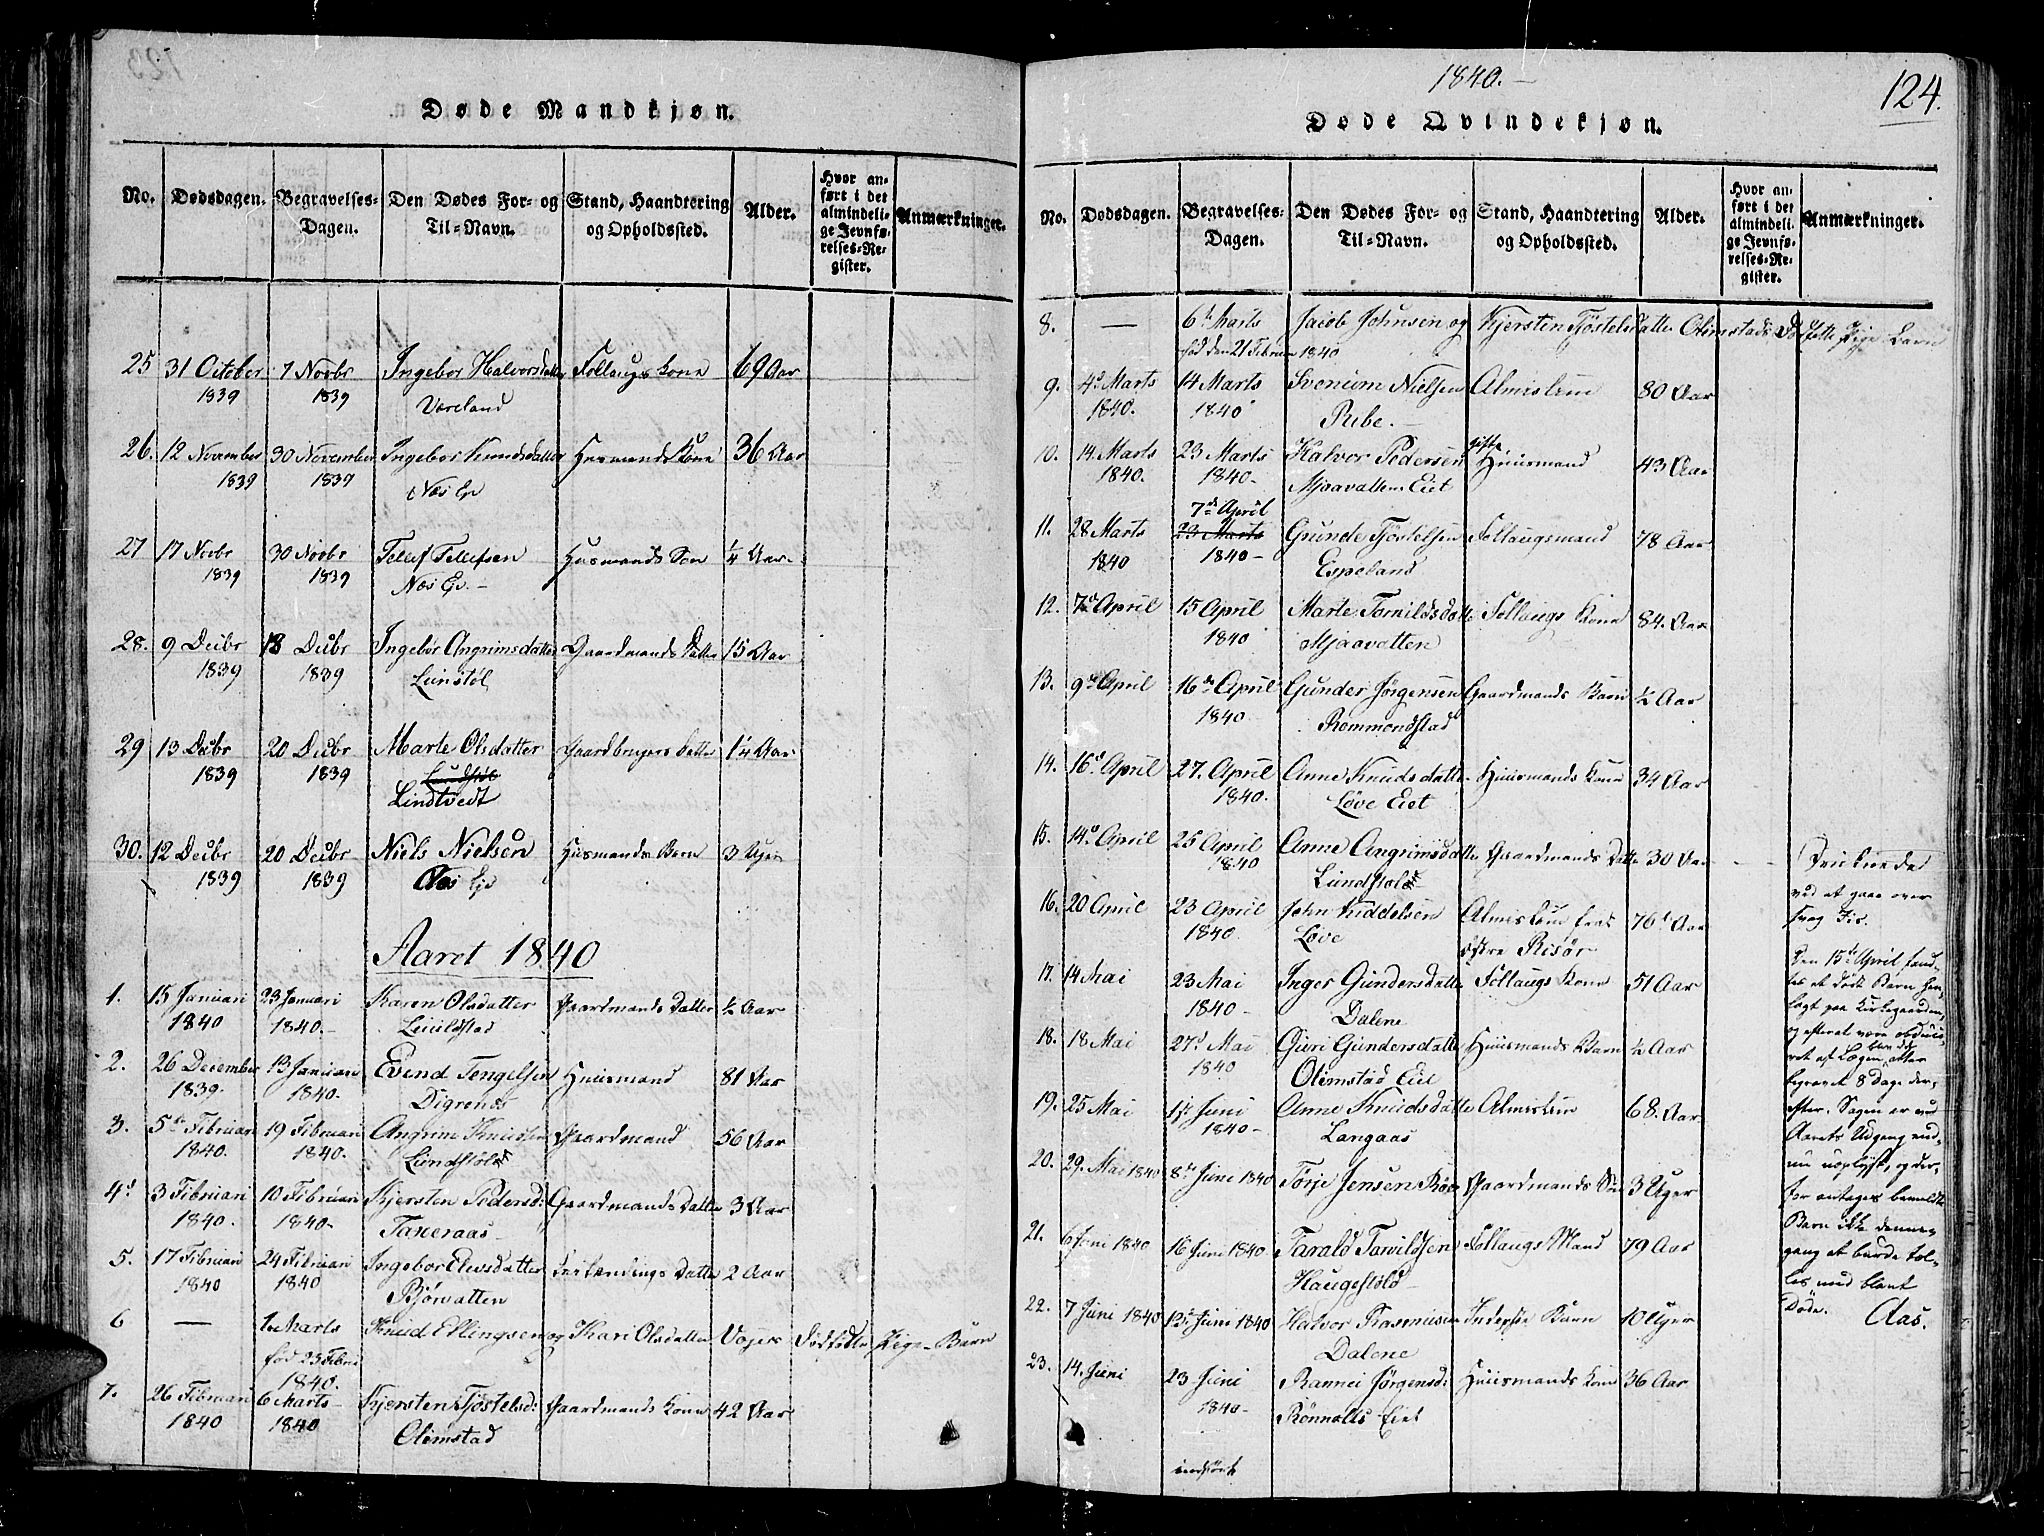 Døde Mandkjøn.
No. Dødsdagen. Begravelses-Dagen. Den Dødes For- og Til-Navn. Stand, Haandtering og Opholdssted. Alder. Hvor anført i det almindelige Jevnførelses-Register. Anmærkninger.
25 31 October 7 Novbr Ingebor Halvorsdatter Follaugs Kone 69 Aar
1839 1839 Væreland
26. 12 November 30 November Ingebor Knudsdatter Husmands Kone 36 Aar
1839 1839 Næs Ej
27 17 Novbr 30 Novbr Tellef Tellefsen Husmands Søn ¼ Aar
1839 1839 Næs Ej.
28. 9 Decbr 18 Decbr Ingebor Angrimsdatter Gaardmands Datter 15 Aar
1839 1839 Lunstøl
29 13 Decbr 20 Decbr Marte Olsdatter Gaardbrugers Datter 14 Aar
1839 1839 Lundstøl
Lindtvedt
30. 12 Decbr 20 Decbr Niels Nielsen Husmands Barn 3 Uger
1839 1839 Næs Eje
Aaret 1840
1. 15 Januari 23 Januari Karen Olsdatter Gaardmands Datter ½ Aar
1840 1840.
2. 26 December 13 Januari Evend Tengelsen Huusmand 81 Aar
1839. 1840. Digrenes
3. 5te Februari 19 Februari Angrim Knudsen Gaardmand 56 Aar
1840. 1840. Lundstøl
4d 3 Februari 10 Februari Kjersten Pedersd: Gaardmands Datter 3 Aar
1840. 1840. Taxeraas
5. 17 Februari 24 Februari Ingebor Elensdatter Datter 2 Aar
1840 1840 Bjørvatten
6 — 1te Marts Knud Ellingsen og Kari Olsdatter Dødfødte Pige-Barn
fød 23 Febru
1840.
7. 26 Februari 6 Marts Kjersten Tjøstelsd: Gaardmands Kone 42 Aar
1840 1840 Olimstad
1840.—
124.
Døde Qvindekjøn.
No. Dødsdagen. Begravelses-Dagen. Den Dødes For- og Til-Navn. Stand, Haandtering og Opholdssted. Alder. Hvor anført i det almindelige Jevnførelses-Register. Anmærkninger.
8. — 6te Marts Jacob Johnsen og Kjersten Tjøstelsdatter Olimstads Dødfødte Pige Barn
fød den 21 Februari 1840
9. 4d Marts 14 Marts Svenum Nielsen Almislem 80 Aar
1840. 1840 Ribe.
10. 14 Marts 23 Marts Halvor Pedersen gifte Huusmand 43 Aar
1840. 1840 Mjaavatten Eiet
11. 28 Marts 7de April Gunde Tjøstelsen Follaugsmand 78 Aar
23 Marts
1840 1840 Espeland
12. 7de April 15 April Marte Tarnildsdatter Follaugs Kone 84. Aar
1840 Mjaavatten
13. 9de April 16de April Gunder Jørgensen Gaardmands Barn ½ Aar
1840. Rommendstad
14. 16d April 27. April Anne Knudsdatter Huusmands Kone 34 Aar
1840. Løve Eiet
15. 14d April 25 April Anne Angrimsdatter Gaardmands Datter 30 Aar
1840 Lundstøl
16. 20 April 23 April John Kiddelsen Almislem fra 76 Aar
1840 Løve Østre Risør
17. 14 Mai 23 Mai Inger Gundersdatter Follaugs Kone 51 Aar
1840 Dalene
18. 18 Mai 27d Mai Guri Gundersdatter Huusmands Barn ½ Aar
1840 Olimstad Eiet
19. 25 Mai 1te Juni Anne Knudsdatter Almislem 68. Aar
1840 Langaas
20. 29. Mai 1840 8de Juni 1840 Torje Jensen Røe Gaardmands Søn 3 Uger
21. 6 Juni 1840 16 Juni 1840 Tarald Tarvildsen Follaugs Mand 79 Aar
Haugestøld
22. 7 Juni 1840 12d Juni 1840 Halvor Rasmusen Inderste Barn 10 Uger
Dalene
23. 14. Juni 23 Juni Rannei Jørgensd: Huusmands Kone 36 Aar
1840 Rønnolts Eiet
indført
Druknede
ved at gaae over
svag Iis.
Den 15de April fand-
tes et dødt Barn hen-
lagt paa Kirkegaarden,
og efteråt være obduce-
ret af Lægen, blev det
begravet 8 Dage der-
efter. Sagen er ved
Aarets Udgang end-
nu uoplyst, og der-
for antages bemeldte
Barn ikke denne-
gang at burde tæl-
les med blant
Døde. Aas.